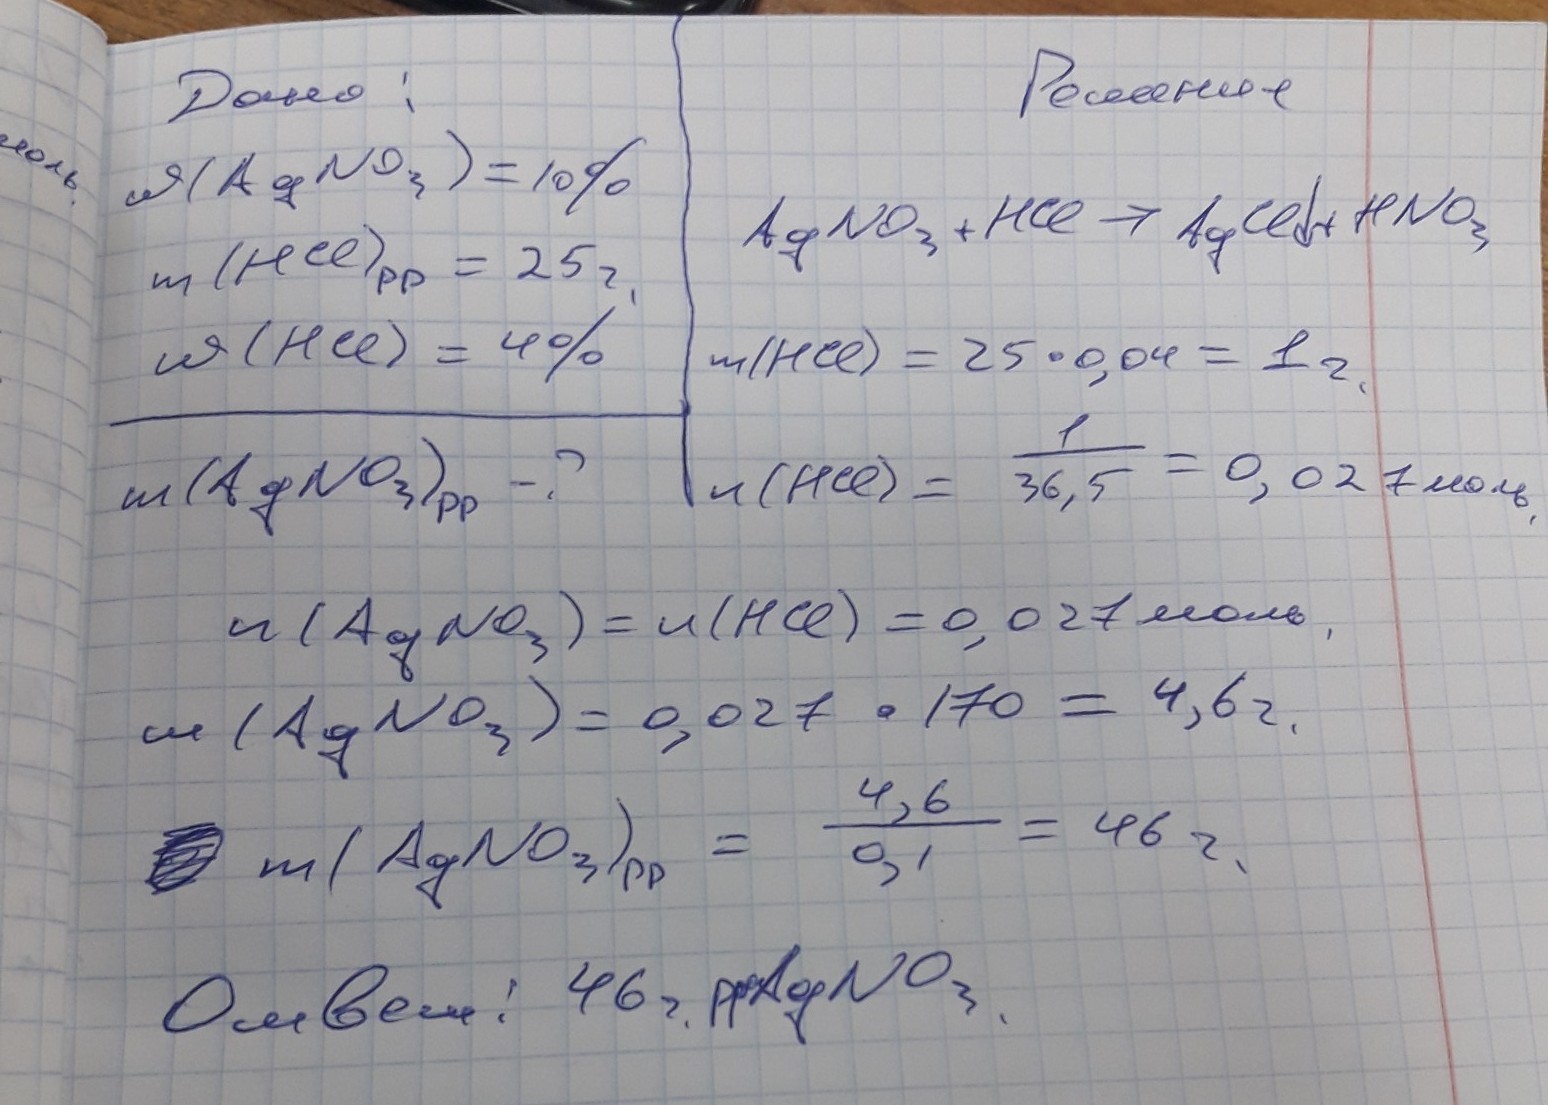 Дано:
ω(AgNO₃) = 10%
m(HCl)рр = 25г.
ω(HCl) = 4%
m(AgNO₃)рр - ?
Решение
AgNO₃ + HCl → AgCl↓ + HNO₃
m(HCl) = 25 · 0,04 = 1г.
n(HCl) = 1/36,5 = 0,027 моль.
n(AgNO₃) = n(HCl) = 0,027 моль.
m(AgNO₃) = 0,027 · 170 = 4,6г.
m(AgNO₃)рр = 4,6/0,1 = 46 г.
Ответ: 46 г. ррAgNO₃.
моль.